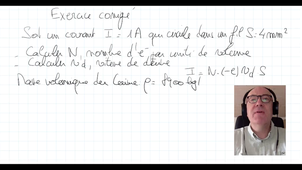 Exercice corrigé
Soit un courant I = 1A qui circule dans un fil S = 4mm²
- Calculer N, nombre d'e⁻ par unité de volume
- Calculer Vd, vitesse de dérive
I = N.(-e) Vd S
Masse volumique du Cuivre ρ = 8900 kg/